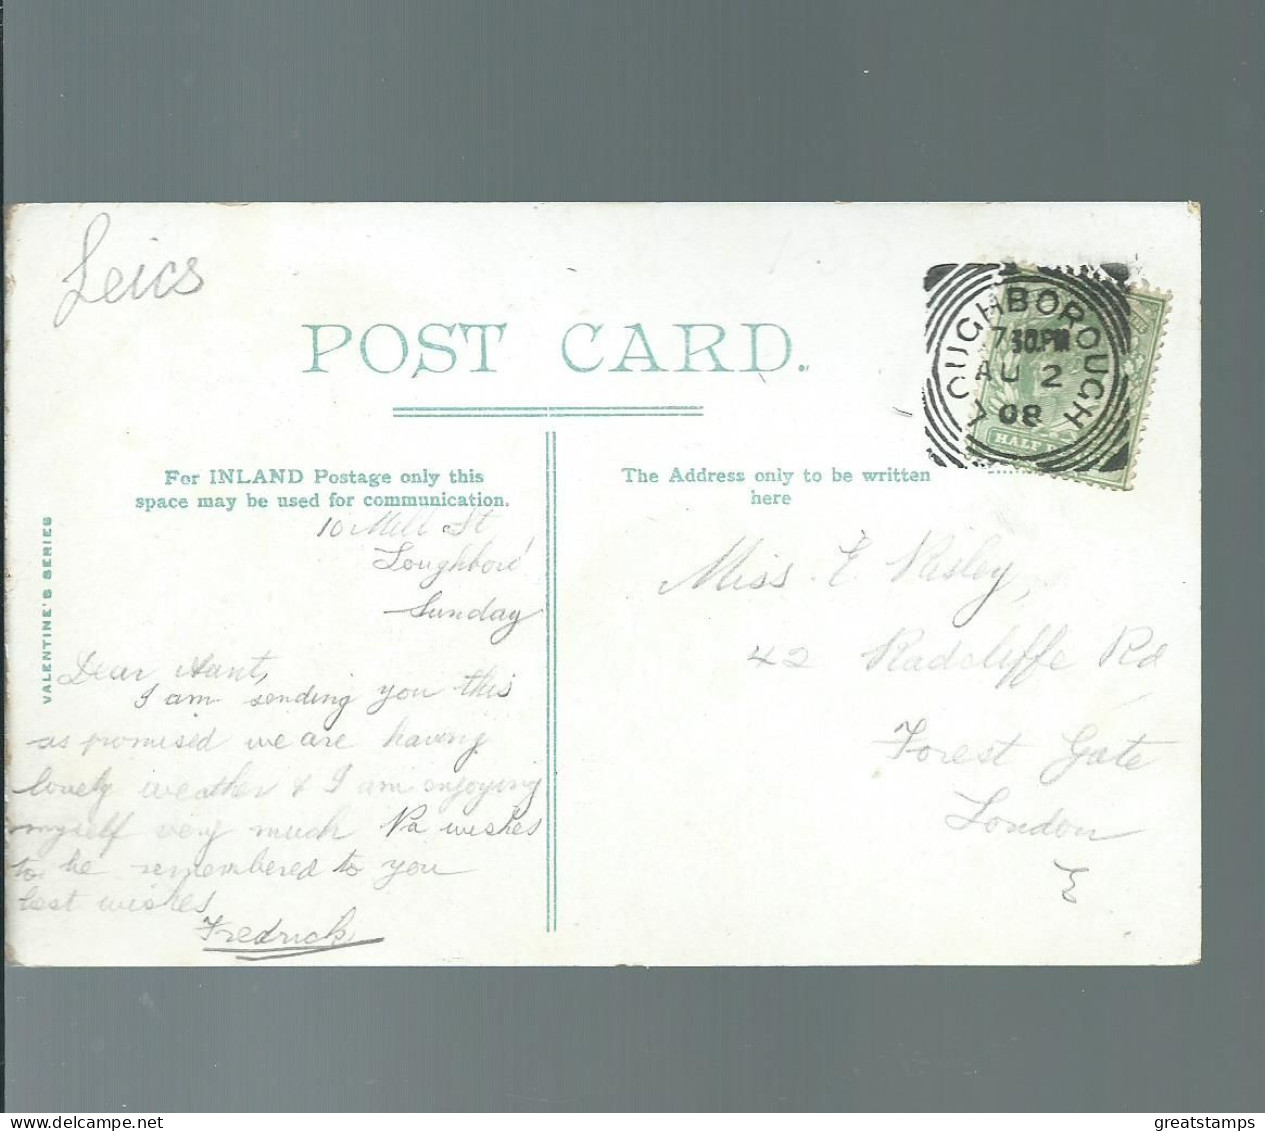 Leics
POST CARD.
OUGHBOROUGH
7 30.PM
AU 2
08
HALF
For INLAND Postage only this
space may be used for communication.
The Address only to be written
here
VALENTINE'S SERIES
10 Mill St
Loughboro'
Sunday
Dear Aunt,
I am sending you this
as promised we are having
lovely weather & I am enjoying
myself very much Pa wishes
to be remembered to you
best wishes
Fredrick
Miss. E. Risley,
42 Radcliffe Rd
Forest Gate
London
E
greatstamps